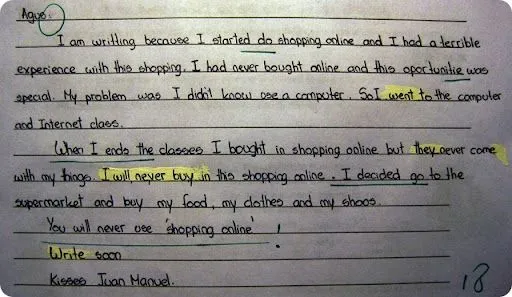 Agus:
I am writting because I started do shopping online and I had a terrible
experience with this shopping. I had never bought online and this oportunitie was
special. My problem was I didn't know use a computer. So I went to the computer
and Internet class.
When I ends the classes I bought in shopping online but they never come
with my things. I will never buy in this shopping online. I decided go to the
supermarket and buy my food, my clothes and my shoos.
You will never use 'shopping online' !
Write soon
Kisses Juan Manuel.
18